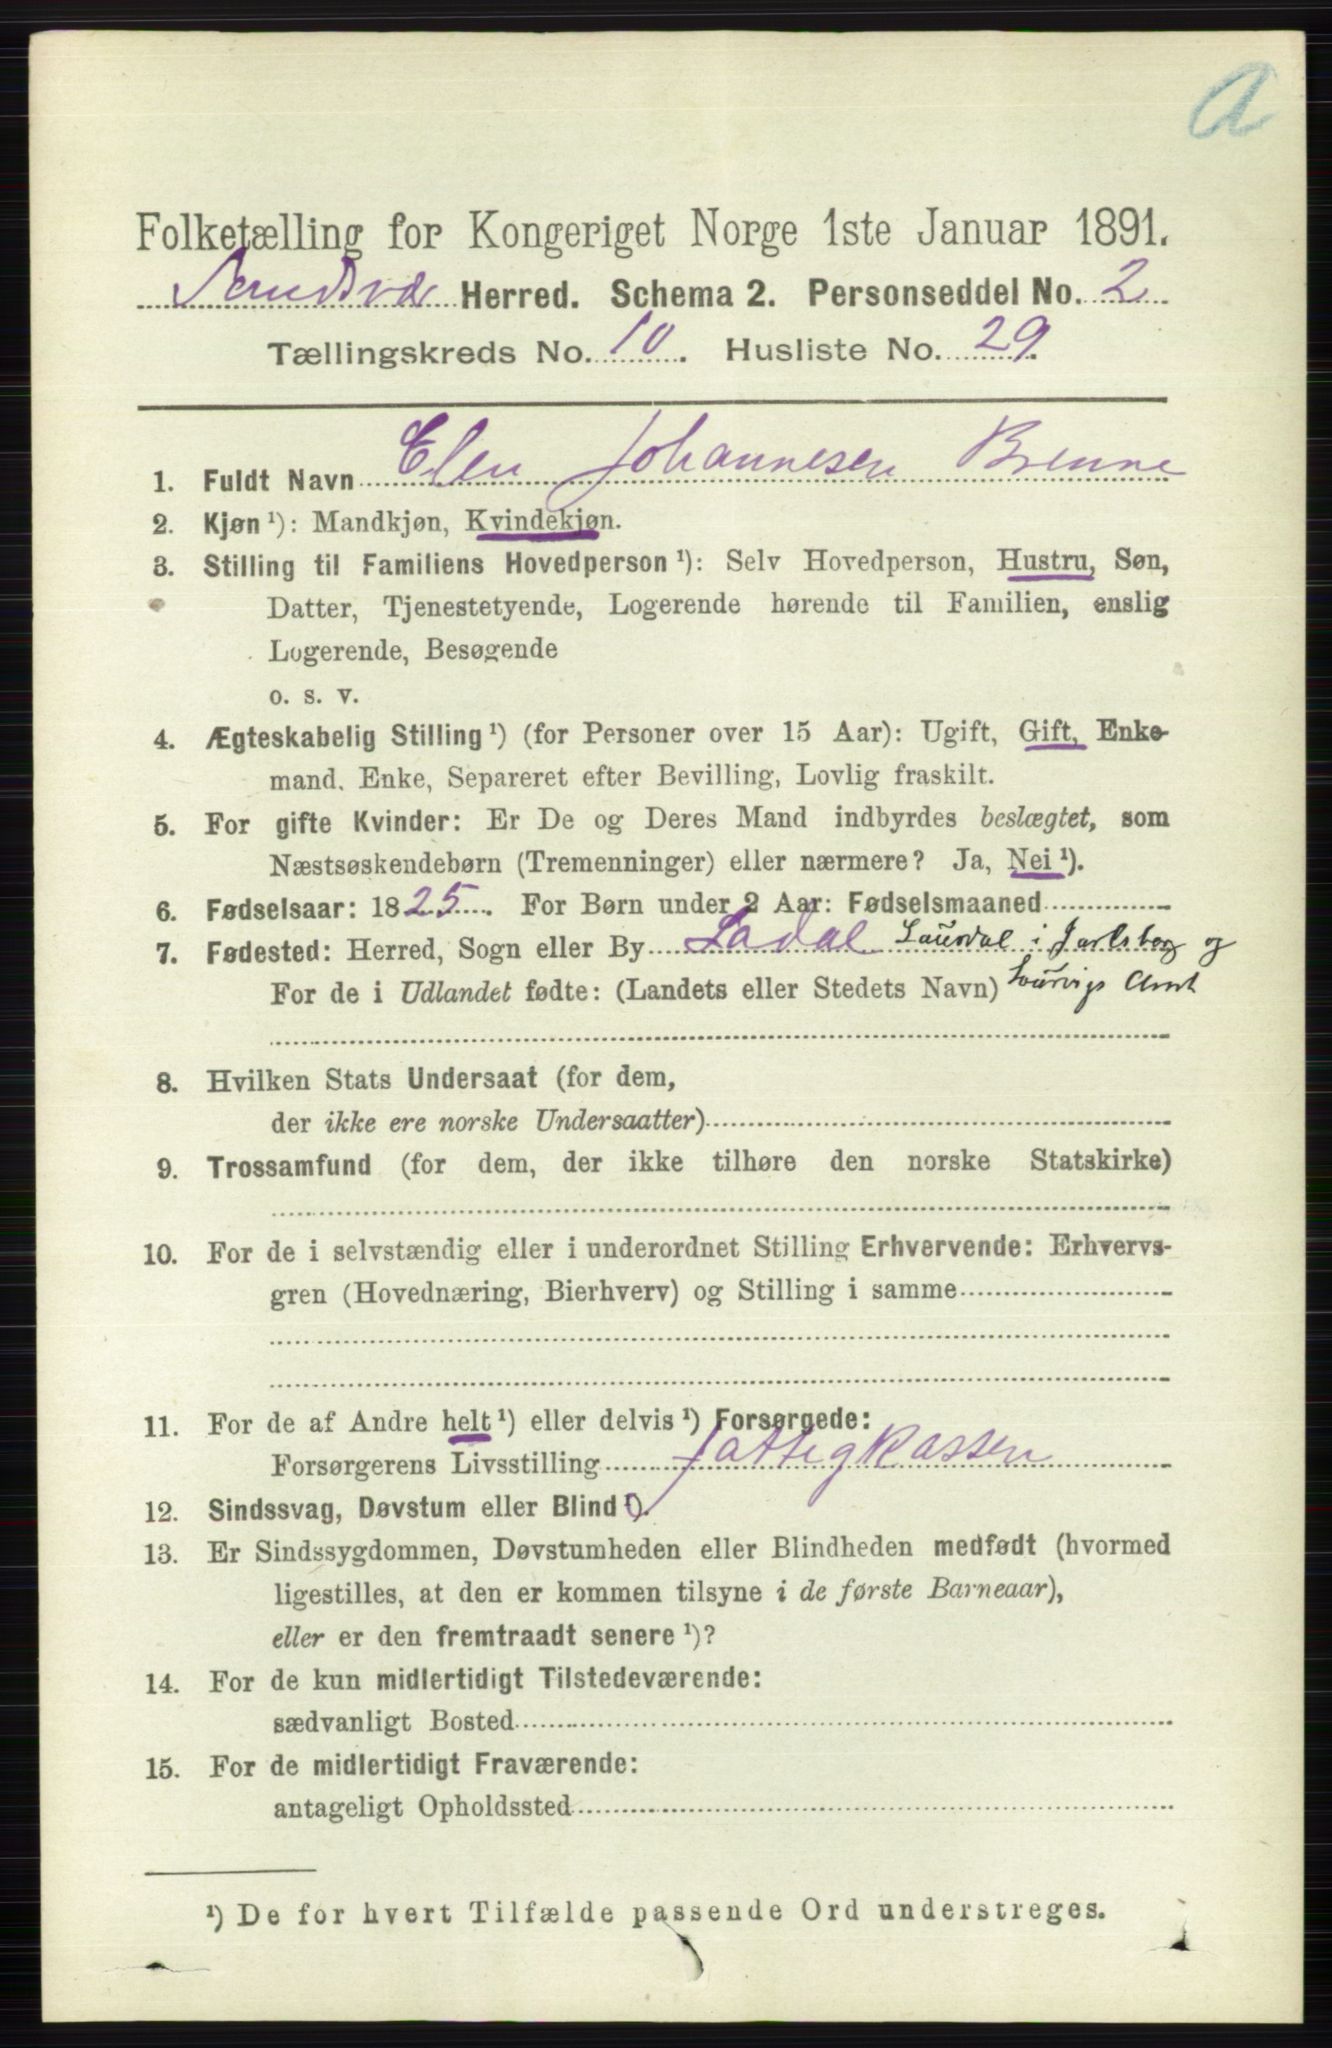 A
Folketælling for Kongeriget Norge 1ste Januar 1891.
Sandsvær Herred. Schema 2. Personseddel No. 2
Tællingskreds No. 10. Husliste No. 29.
1. Fuldt Navn Elen Johannesen Brenne
2. Kjøn ¹): Mandkjøn, Kvindekjøn.
3. Stilling til Familiens Hovedperson ¹): Selv Hovedperson, Hustru, Søn,
Datter, Tjenestetyende, Logerende hørende til Familien, enslig
Logerende, Besøgende
o. s. v.
4. Ægteskabelig Stilling ¹) (for Personer over 15 Aar): Ugift, Gift, Enke-
mand, Enke, Separeret efter Bevilling, Lovlig fraskilt.
5. For gifte Kvinder: Er De og Deres Mand indbyrdes beslægtet, som
Næstsøskendebørn (Tremenninger) eller nærmere? Ja, Nei ¹).
6. Fødselsaar: 1825. For Børn under 2 Aar: Fødselsmaaned
7. Fødested: Herred, Sogn eller By Ladal Laurdal i Jarlsberg og
For de i Udlandet fødte: (Landets eller Stedets Navn) Laurvigs Amt
8. Hvilken Stats Undersaat (for dem,
der ikke ere norske Undersaatter)
9. Trossamfund (for dem, der ikke tilhøre den norske Statskirke)
10. For de i selvstændig eller i underordnet Stilling Erhvervende: Erhvervs-
gren (Hovednæring, Bierhverv) og Stilling i samme
11. For de af Andre helt ¹) eller delvis ¹) Forsørgede:
Forsørgerens Livsstilling fattigkassen
12. Sindssvag, Døvstum eller Blind ¹).
13. Er Sindssygdommen, Døvstumheden eller Blindheden medfødt (hvormed
ligestilles, at den er kommen tilsyne i de første Barneaar),
eller er den fremtraadt senere ¹)?
14. For de kun midlertidigt Tilstedeværende:
sædvanligt Bosted
15. For de midlertidigt Fraværende:
antageligt Opholdssted
¹) De for hvert Tilfælde passende Ord understreges.